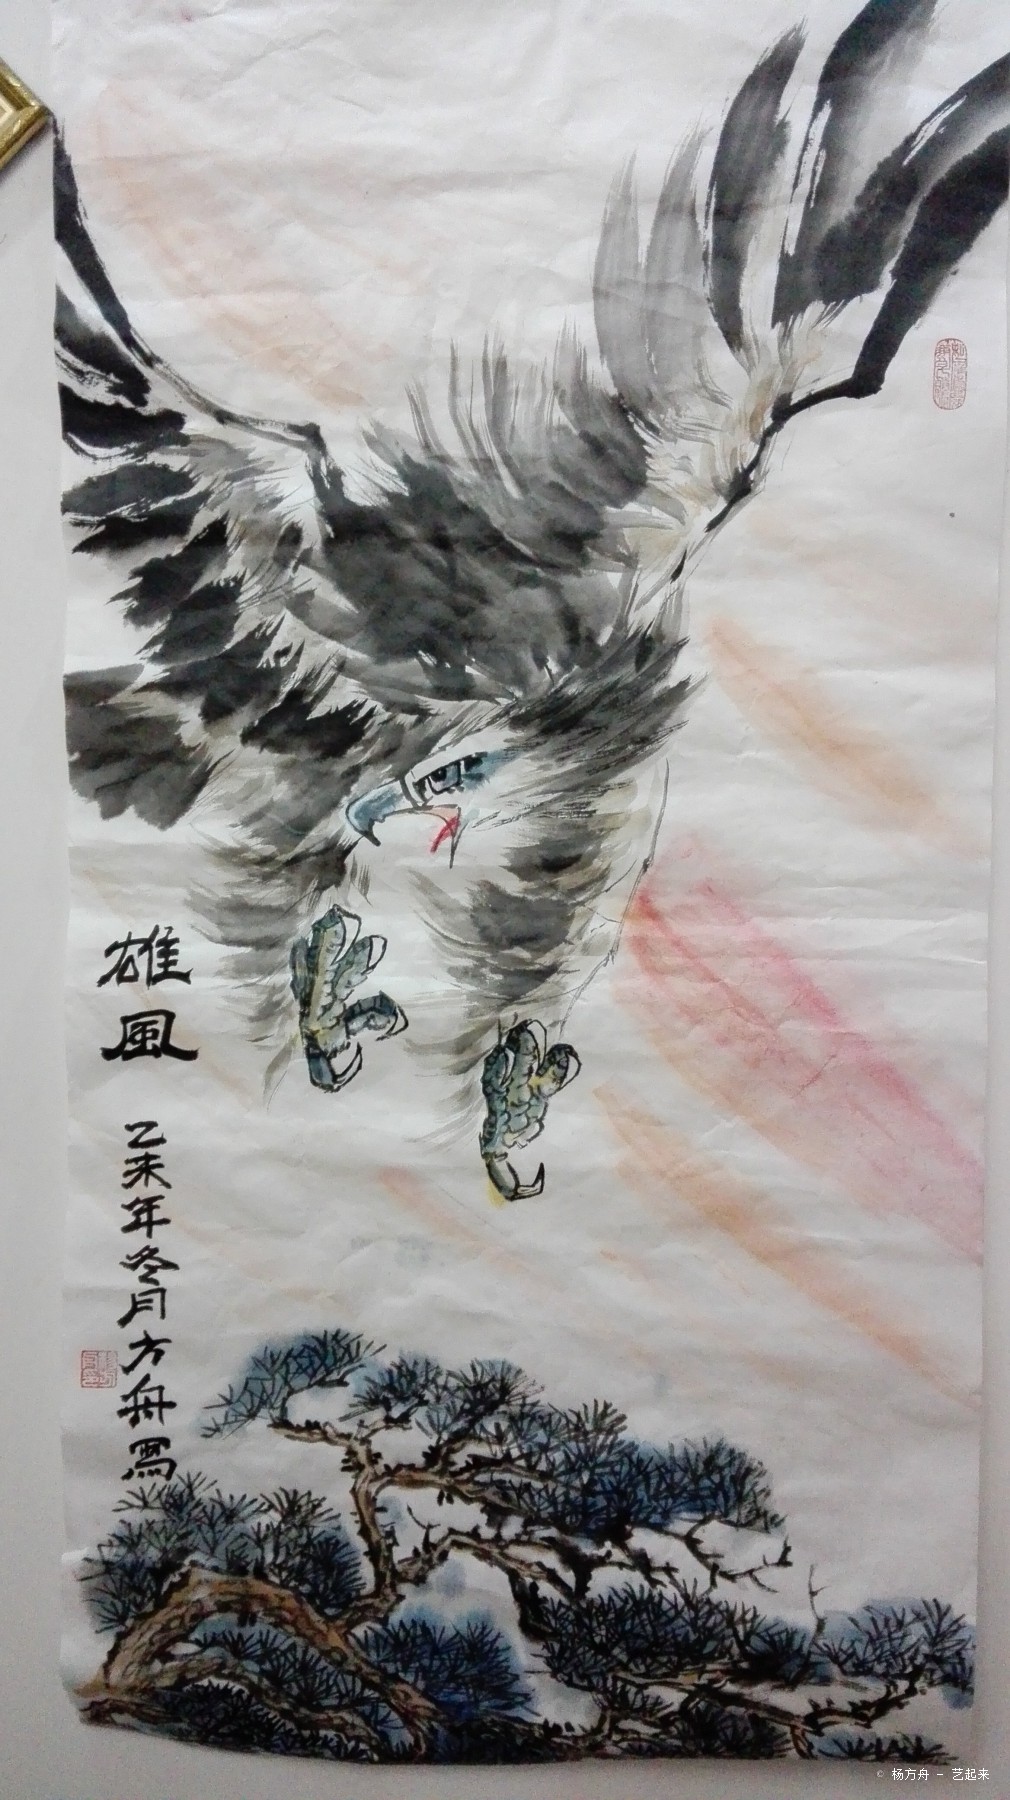 雄風
乙未年冬月方舟寫
© 杨方舟 - 艺起来